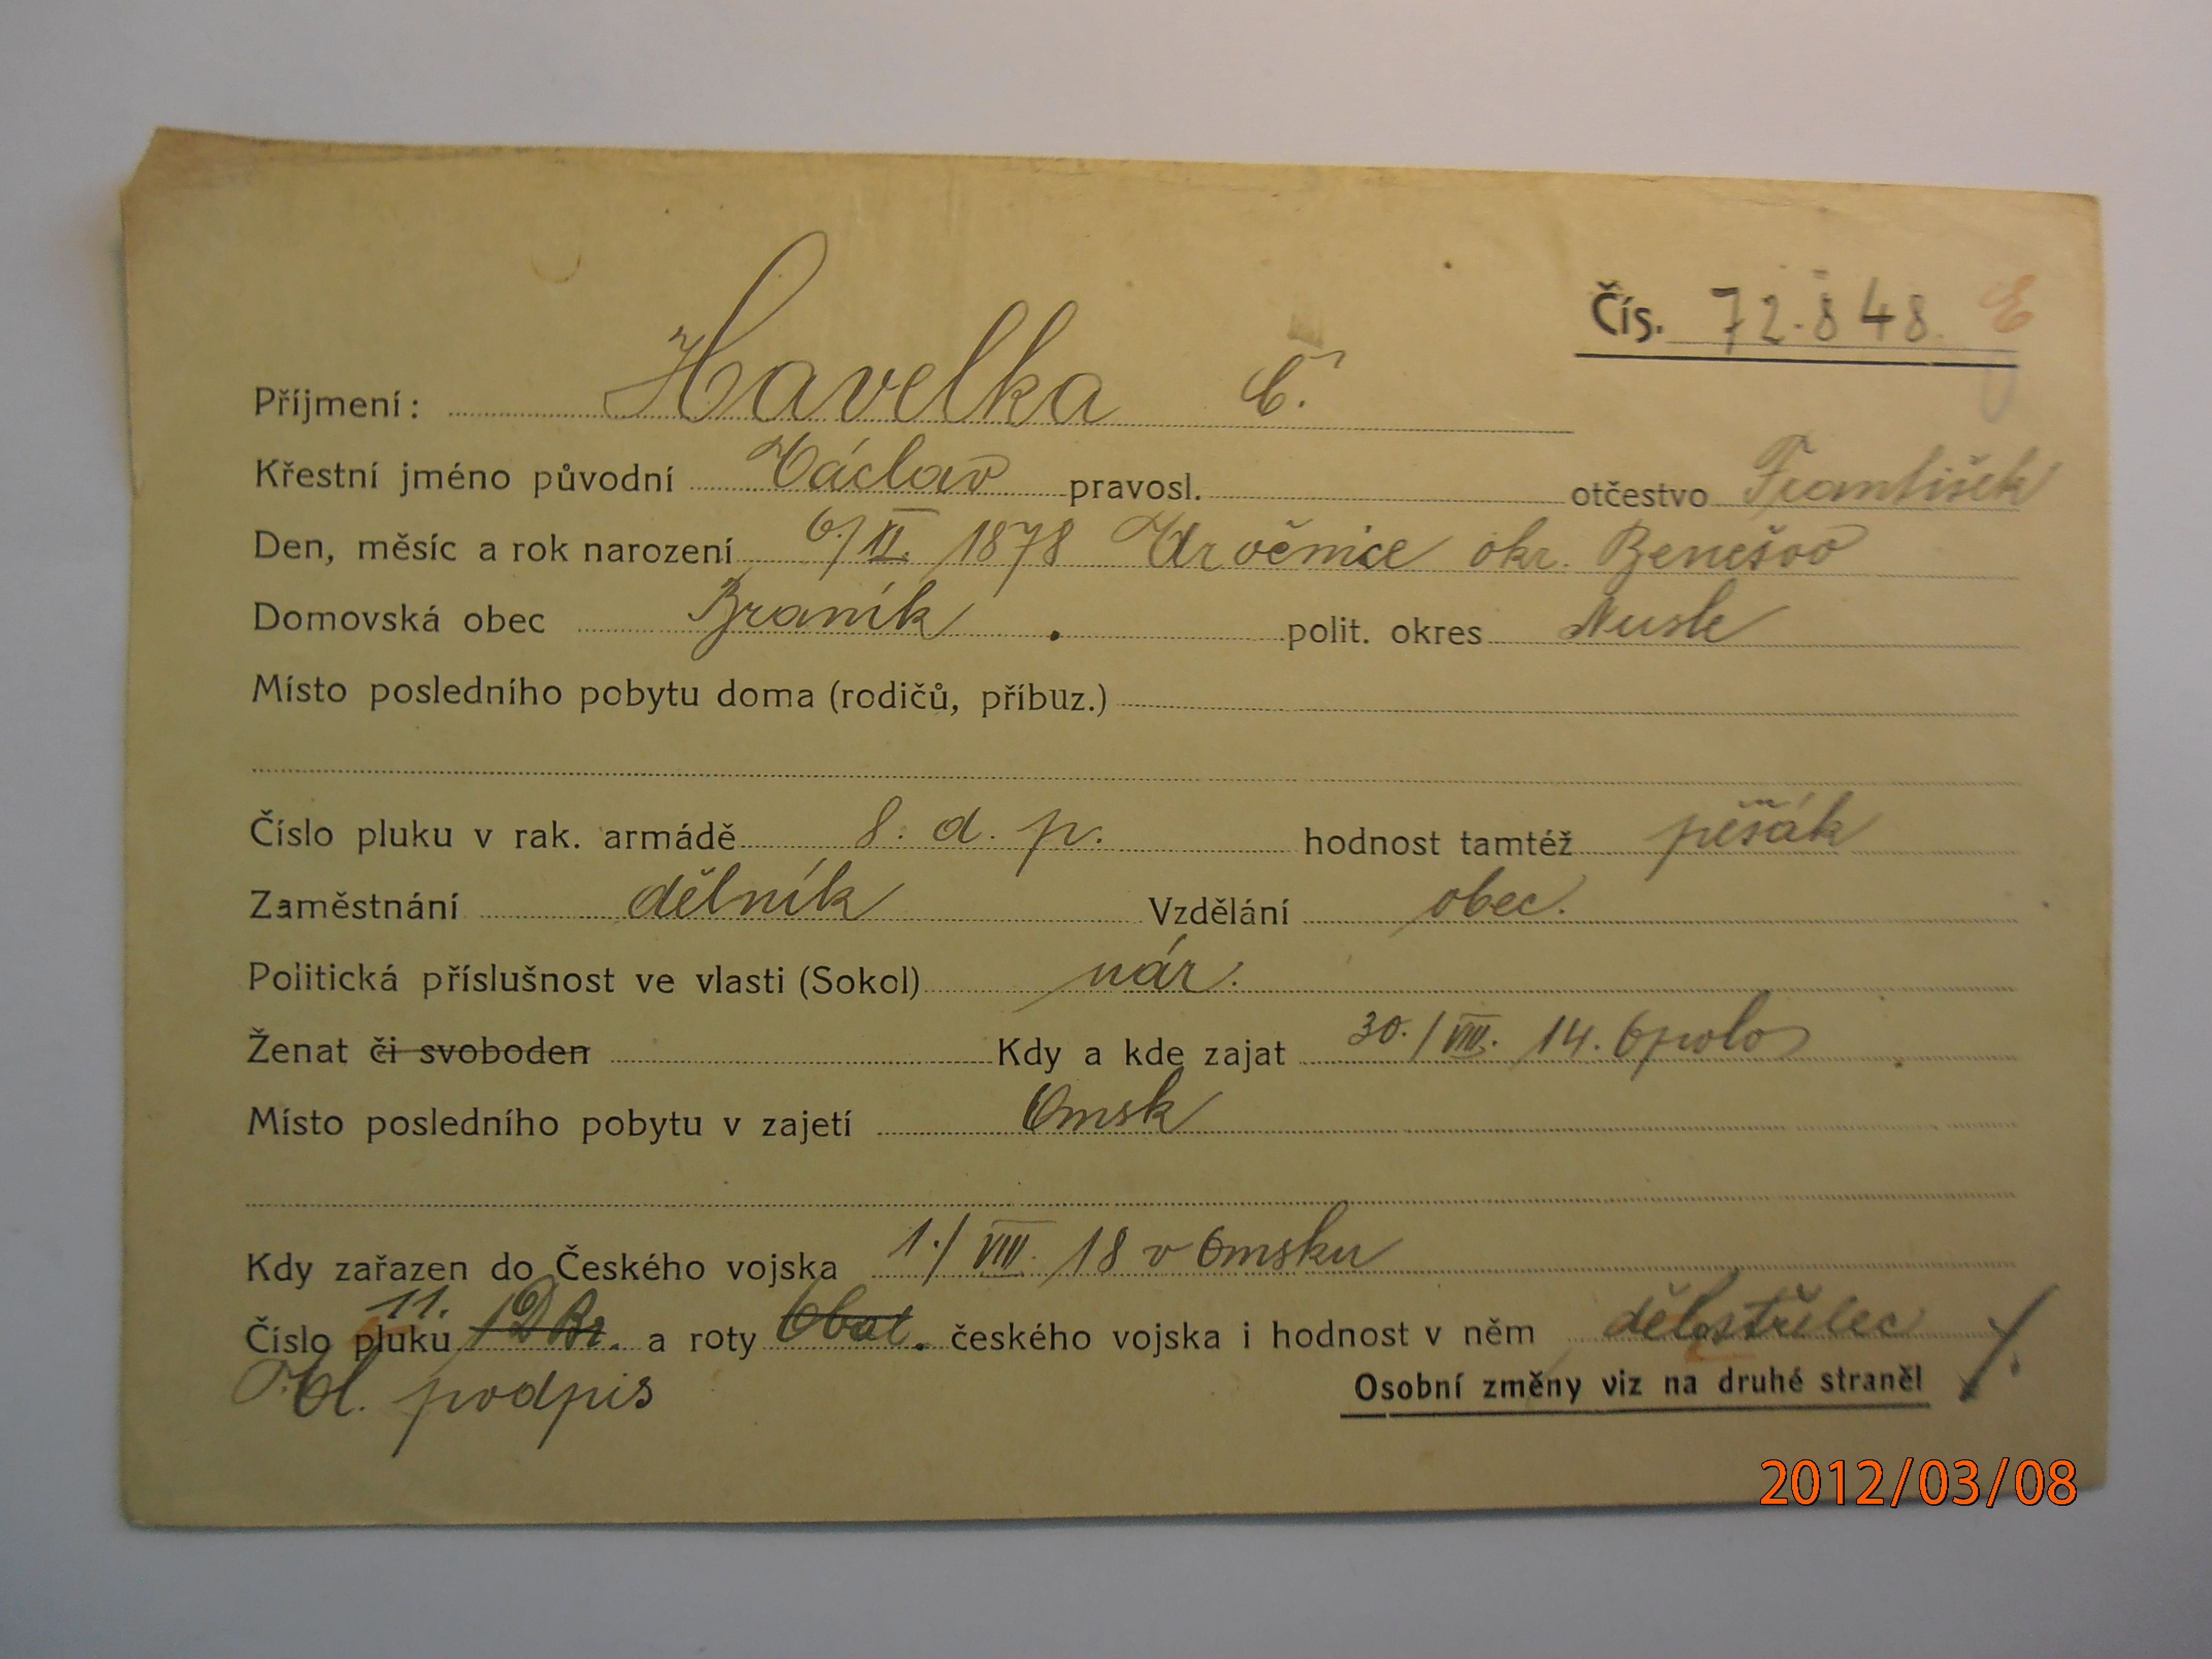 Čís. 72.848. E
Příjmení: Havelka Č.
Křestní jméno původní Václav pravosl. otčestvo František
Den, měsíc a rok narození 6./II. 1878 okr. Benešov
Domovská obec Braník polit. okres Nusle
Místo posledního pobytu doma (rodičů, příbuz.)
Číslo pluku v rak. armádě 8. d. p. hodnost tamtéž pěšák
Zaměstnání dělník Vzdělání obec.
Politická příslušnost ve vlasti (Sokol) nár.
Ženat či svoboden Kdy a kde zajat 30./VIII. 14. Opolo
Místo posledního pobytu v zajetí Omsk
Kdy zařazen do Českého vojska 1./VIII. 18 v Omsku
11.
Číslo pluku a roty českého vojska i hodnost v něm dělostřelec
Vl. podpis
Osobní změny viz na druhé straně!
2012/03/08